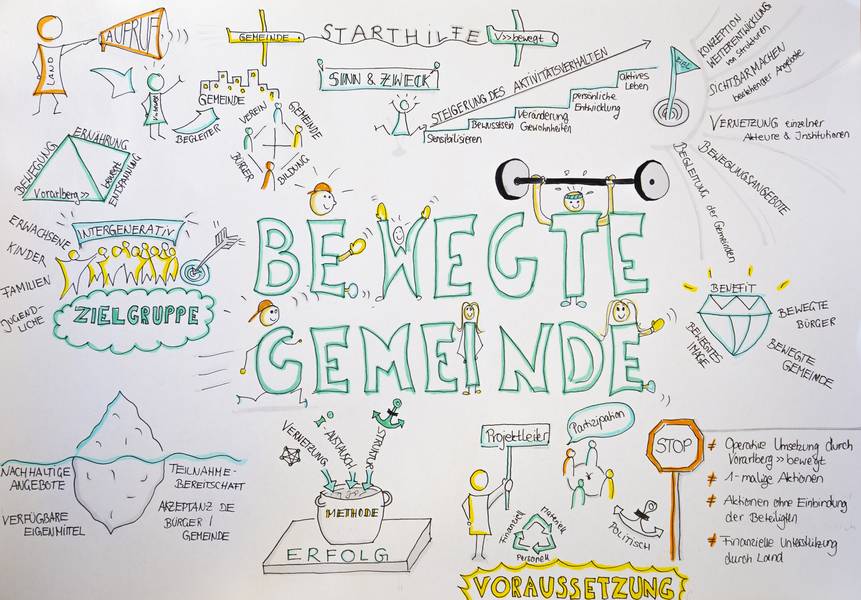 LAND
AUFRUF
GEMEINDE
STARTHILFE
V>>bewegt
SINN & ZWECK
STEIGERUNG DES AKTIVITÄTSVERHALTEN
Sensibilisieren
Bewusstsein
Veränderung
Gewohnheiten
persönliche
Entwicklung
aktives
Leben
ZIEL
KONZEPTION
WEITERENTWICKLUNG
von Strukturen
SICHTBARMACHEN
bestehender Angebote
VERNETZUNG einzelner
Akteure & Institutionen
BEWEGUNGSANGEBOTE
BEGLEITUNG der Gemeinden
GEMEINDE
BEGLEITER
VEREIN
GEMEINDE
BÜRGER
BILDUNG
BEWEGUNG
ERNÄHRUNG
ENTSPANNUNG
Vorarlberg >>
bewegt
ERWACHSENE
KINDER
FAMILIEN
JUGEND-
LICHE
INTERGENERATIV
ZIELGRUPPE
BEWEGTE
GEMEINDE
BENEFIT
BEWEGTES
IMAGE
BEWEGTE
BÜRGER
BEWEGTE
GEMEINDE
NACHHALTIGE
ANGEBOTE
VERFÜGBARE
EIGENMITTEL
TEILNAHME-
BEREITSCHAFT
AKZEPTANZ DE
BÜRGER /
GEMEINDE
VERNETZUNG
-AUSTAUCH
STRUKTUR
METHODE
ERFOLG
Projektleiter
Partizipation
Finanziell
Materiell
Personell
POLITISCH
VORAUSSETZUNG
STOP
# Operative Umsetzung durch
Vorarlberg >> bewegt
# 1-malige Aktionen
# Aktionen ohne Einbindung
der Beteiligten
# Finanzielle Unterstützung
durch Land